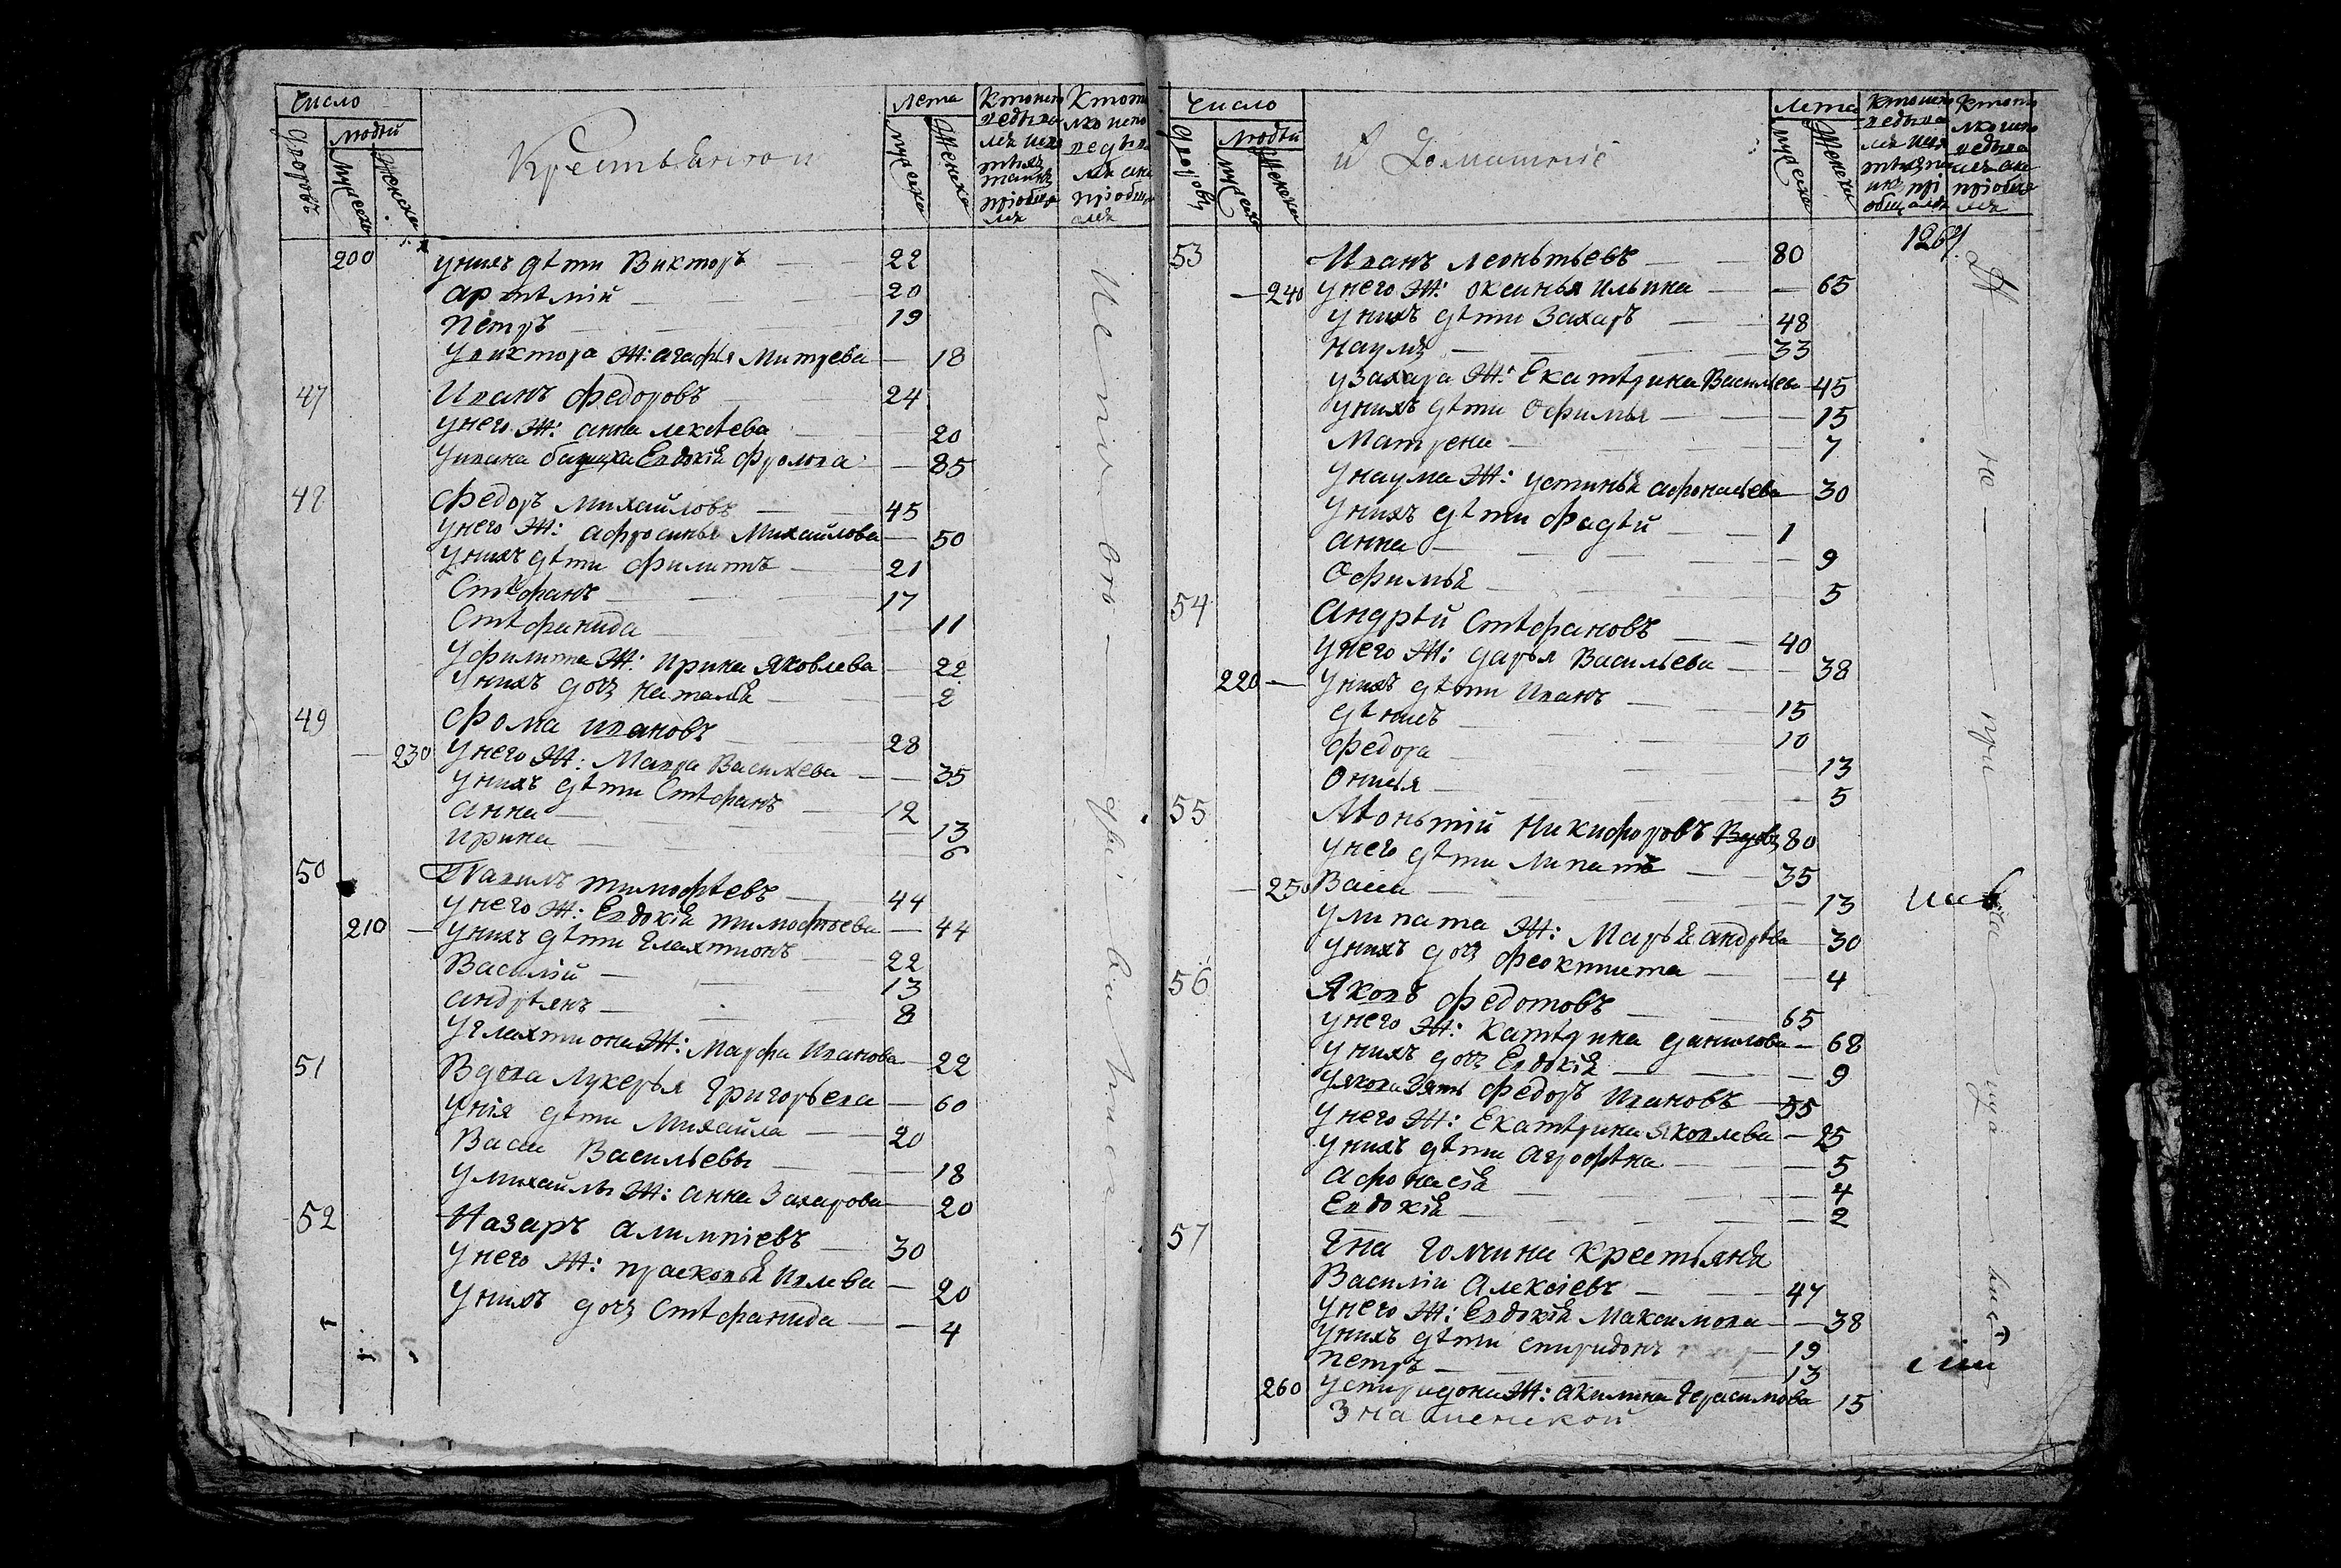 Число
Лета
дворовъ
людей
мужеска
женска
Крестьянъ и
мужеска
женска
200 у нихъ дѣти Викторъ 22
артѣмiй 20
пётръ 19
у виктора Ж: агафья Митрева 18
47 Иванъ федоровъ 24
у него Ж: анна лексѣева 20
у ивана Евдокiя фролова 85
48 федоръ михайловъ 45
у него Ж: афросинья Михайлова 50
у нихъ дѣти филиппъ 21
Стѣфанъ 17
Стѣфанида 11
у филиппа Ж: ирина яковлева 22
у нихъ дочь наталья 2
49 фома ивановъ 28
230 у него Ж: Мавра Василева 35
у нихъ дѣти Стѣфанъ 12
анна 13
ирина 6
50 Павилъ тимофѣевъ 44
у него Ж: Евдокiя тимофѣева 44
210 у нихъ дѣти Елахтионъ 22
Василiй 13
андрѣянъ 8
у елахтиона Ж: марфа иванова 22
51 Вдова лукерья григорьева 60
у нiя дѣти михайла 20
Васса Васильевы 18
у михайлы Ж: анна Захарова 20
52 Назаръ алимпiевъ 30
у него Ж: прасковья ивлева 20
у нихъ дочь Стѣфанида 4
Число
дворовъ
людей
мужеска
женска
и Домашнiе
Лета
мужеска
женска
1264
53 Иванъ леонтьевъ 80
240 у него Ж: оксинья ильина 65
у нихъ дѣти Захаръ 48
наумъ 33
у Захара Ж: Екатѣрина Васильева 45
у нихъ дѣти Офимья 15
Матрена 7
у наума Ж: устинья афонасьева 30
у нихъ дѣти фадѣй 1
анна 9
Офимья 5
54 андрѣй Стѣфановъ 40
у него Ж: дарья Васильева 38
220 у нихъ дѣти иванъ 15
дѣнисъ 10
федора 13
онисья 5
55 Лѣонтiй никифоровъ Вдовъ 80
у него дѣти липатъ 35
250 Васса 13
у липата Ж: Марья андрѣева 30
у нихъ дочь феоктиста 4
56 яковъ федотовъ 65
у него Ж: катѣрина данилова 68
у нихъ дочь Евдокiя 9
у якова Зять федоръ ивановъ 35
у него Ж: Екатѣрина яковлева 25
у нихъ дѣти агрофѣна 5
афонасья 4
Евдокiя 2
57 гна крестьяня
Василiй алексѣевъ 47
у него Ж: Евдокiя Максимова 38
у нихъ дѣти спиридонъ 19
петръ 13
260 у спиридона Ж: акилина герасимова 15
Знаменской